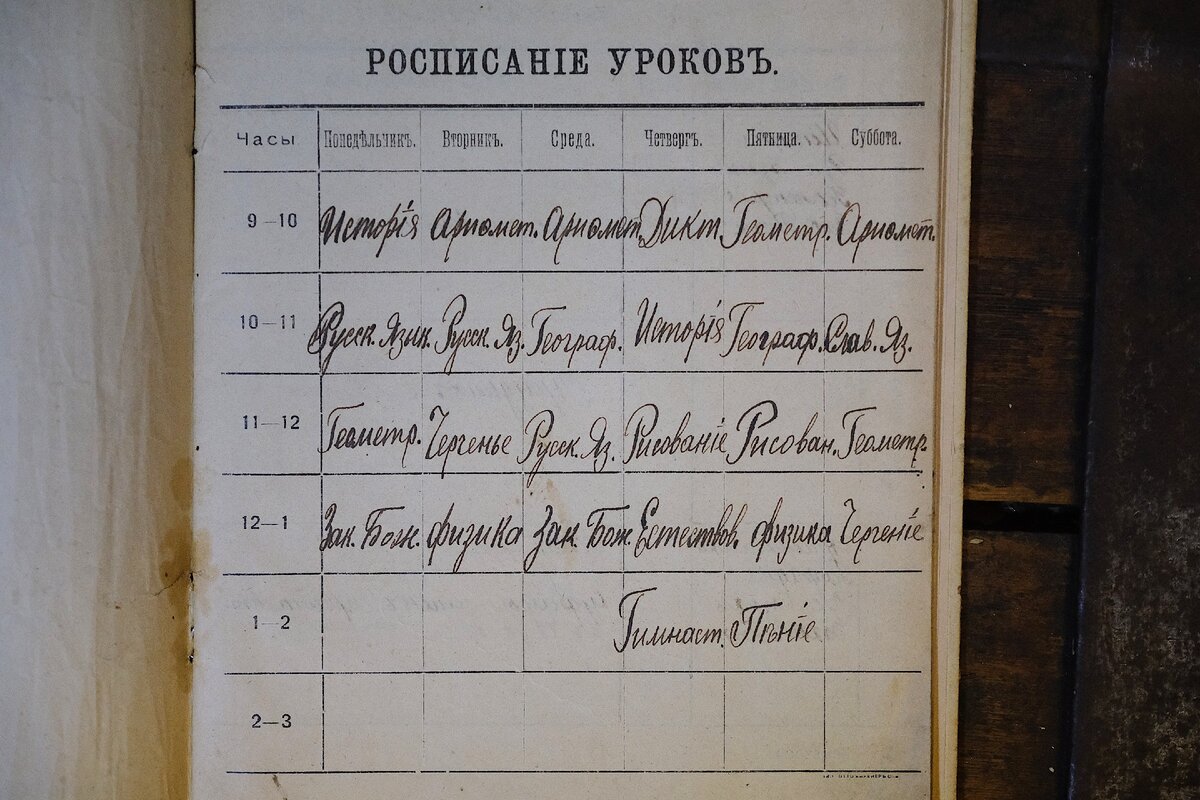 РОСПИСАНІЕ УРОКОВЪ.
Часы Понедѣльникъ. Вторникъ. Среда. Четвергъ. Пятница. Суббота.
9—10 Исторія Ариѳмет. Ариѳмет. Дикт. Геометр. Ариѳмет.
10—11 Русск. Язык. Русск. Яз. Географ. Исторія Географ. Слав. Яз.
11—12 Геометр. Черченье Русск. Яз. Рисованіе Рисован. Геометр.
12—1 Зак. Бож. Физика Зак. Бож. Естествов. Физика Черченіе
1—2 Гимнаст. Пѣніе
2—3